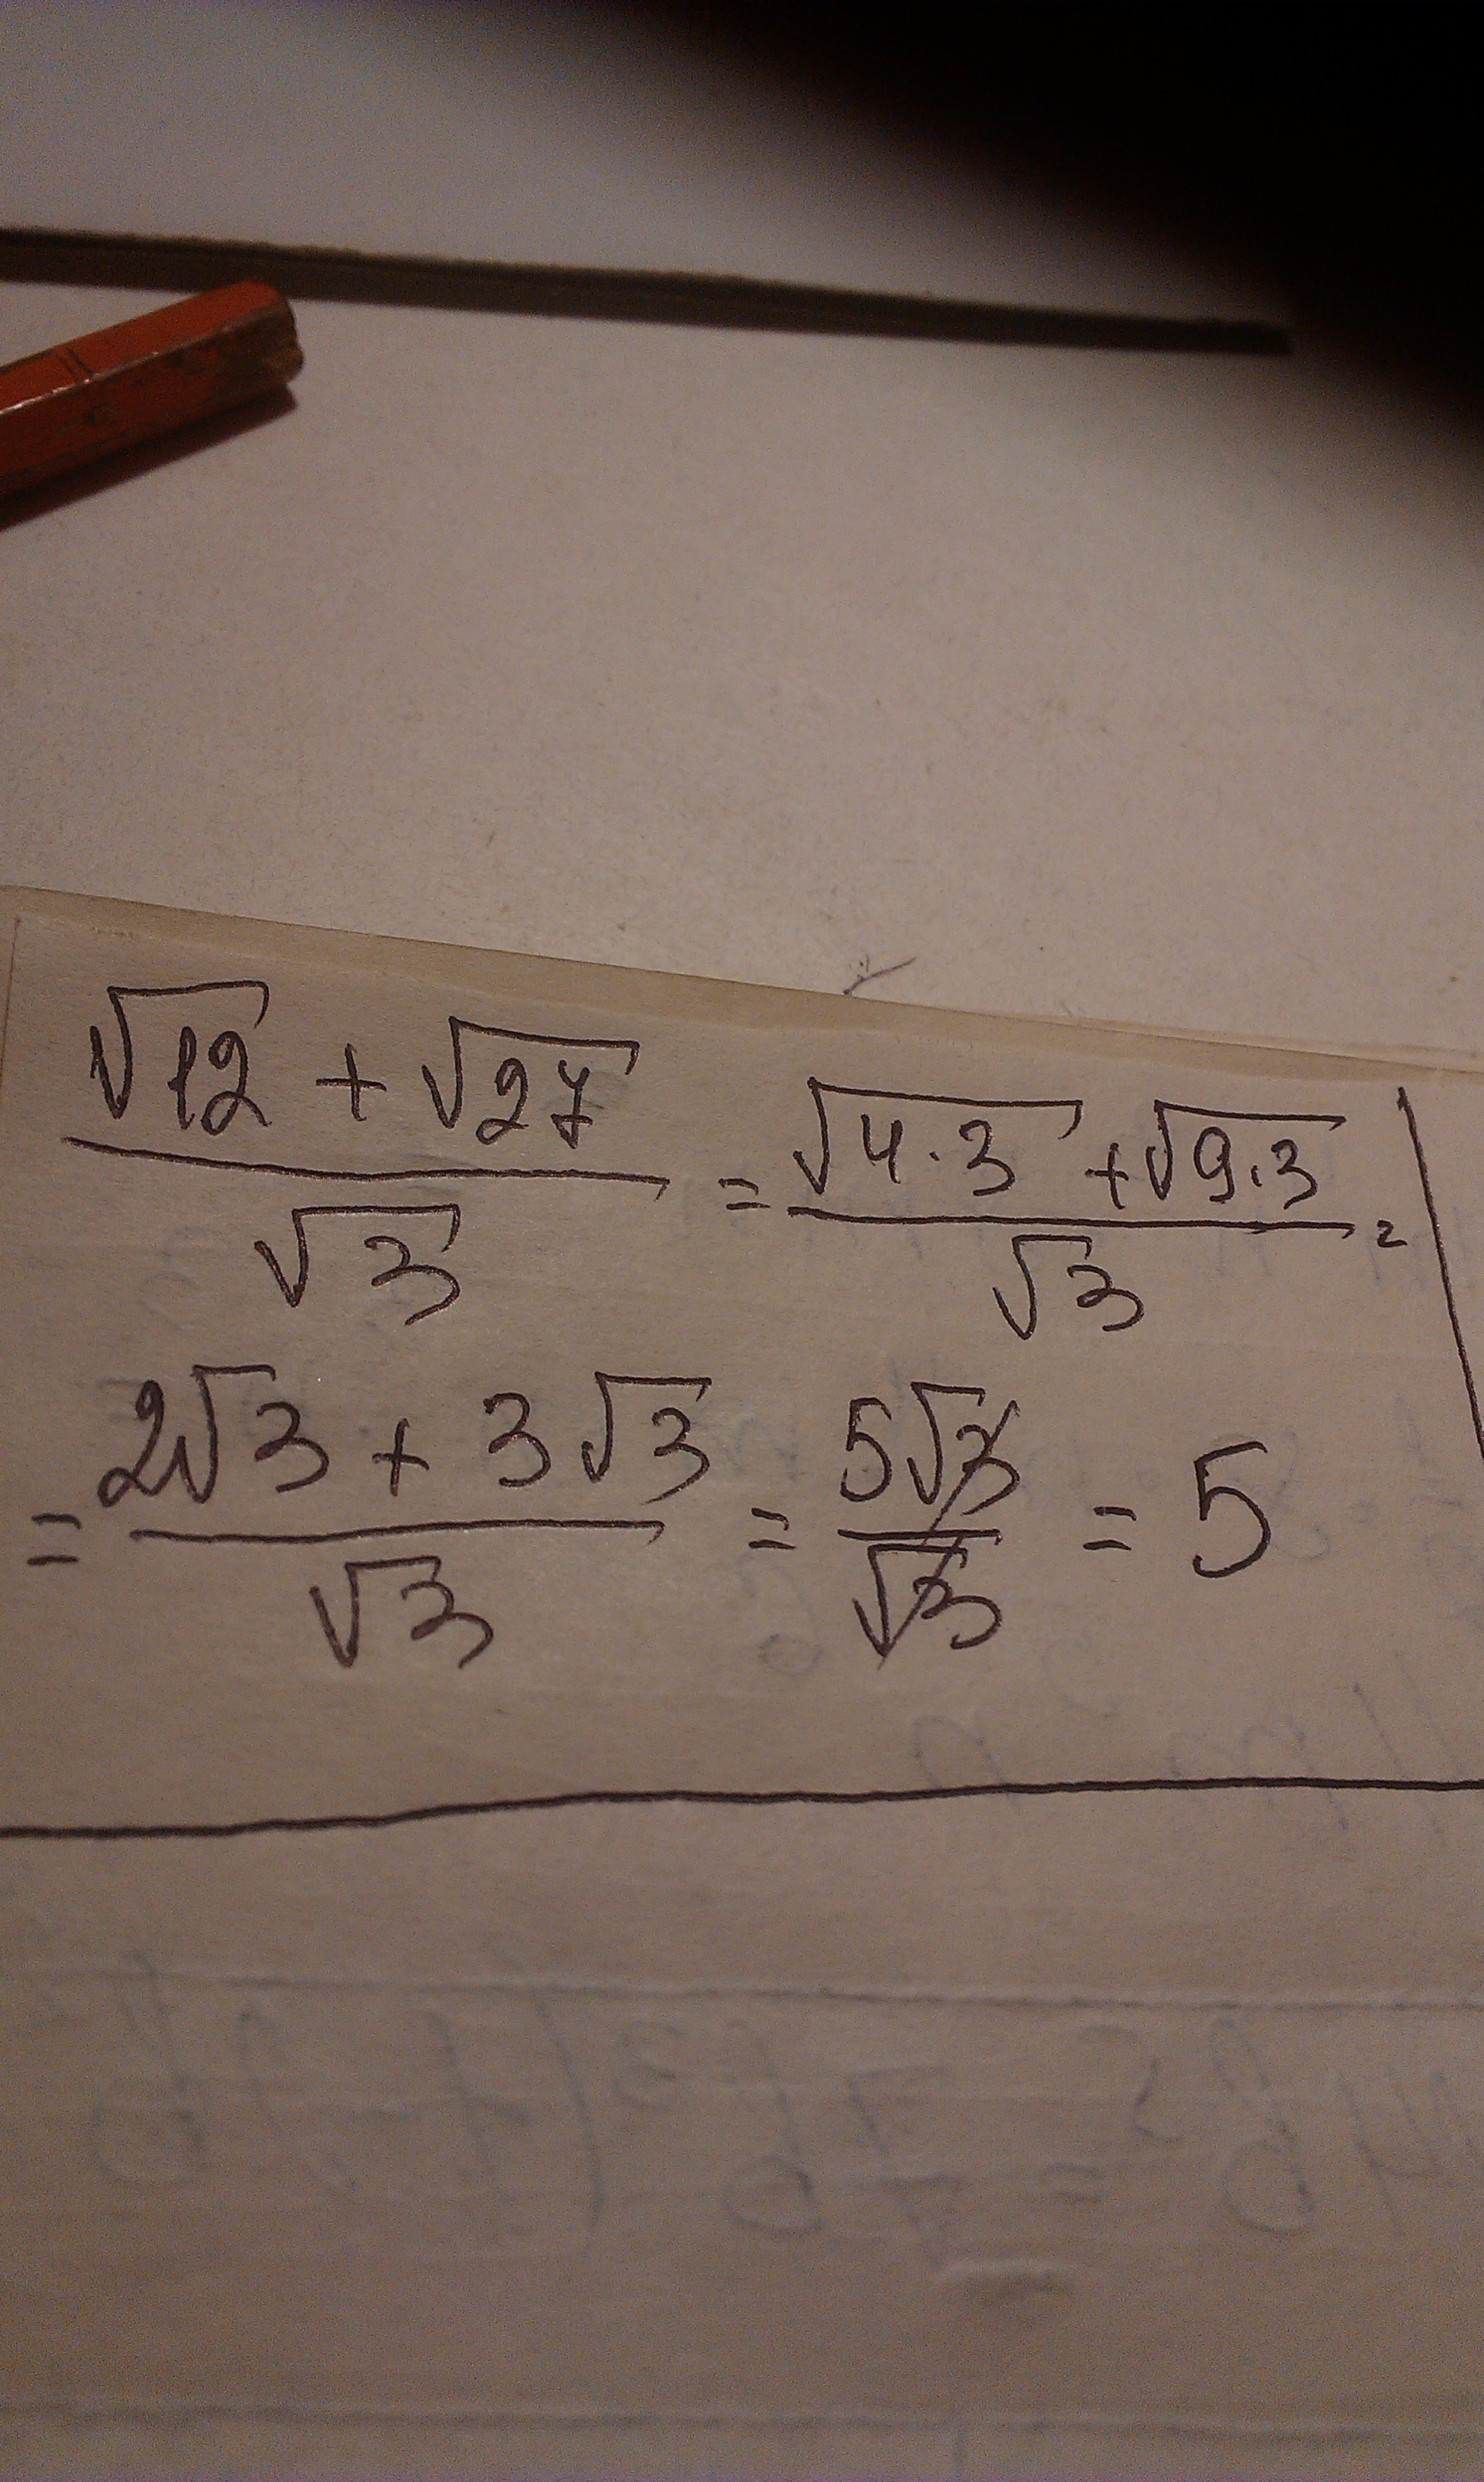 (√12 + √27)/√3 = (√4·3 + √9·3)/√3 =
= (2√3 + 3√3)/√3 = 5√3/√3 = 5